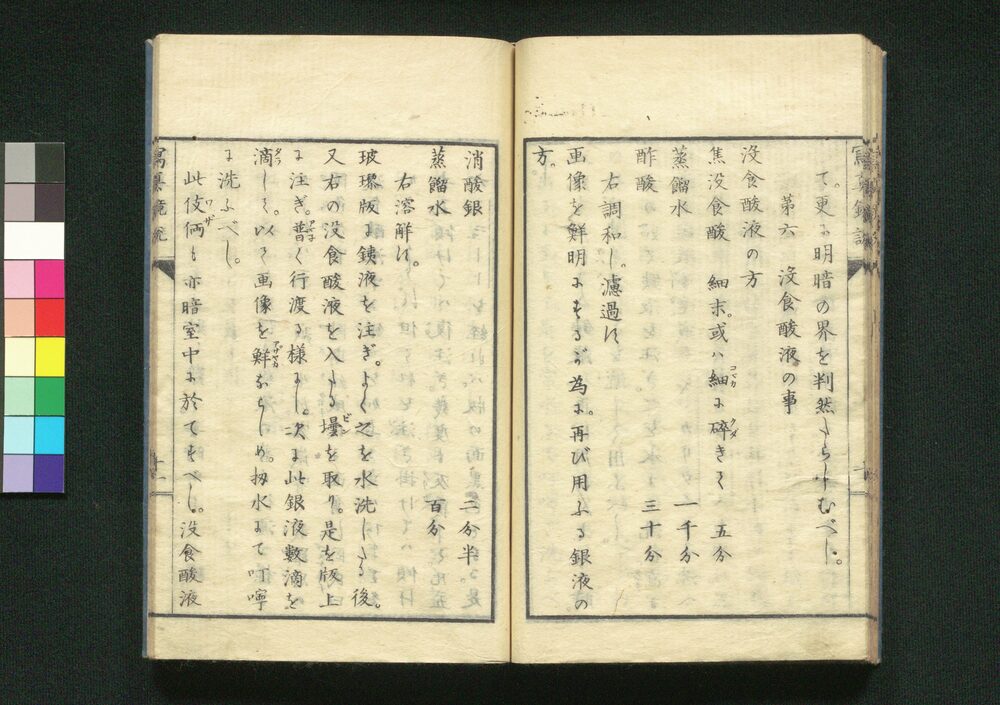 て。更に明暗の界を判然たらしむべし。
第六 没食酸液の事
没食酸液の方
焦没食酸 細末。或ハ細に碎きるハ 五分
蒸餾水 一千分
酢酸 三十分
右調和し。濾過す
画像を鮮明にするが為に。再び用ふる銀液の
方。
消酸銀 二分半。
蒸餾水 百分
右溶解す。
玻瓈版に銕液を注ぎ。よく之を水洗したる後。
又右の没食酸液を入たる壜を取り。是を版上
に注ぎ。普く行渡る様にし。次に此銀液数滴を
滴して。以て画像を鮮ならしめ。扨水にて叮嚀
に洗ふべし。
此伎倆も亦暗室中に於てすべし。没食酸液